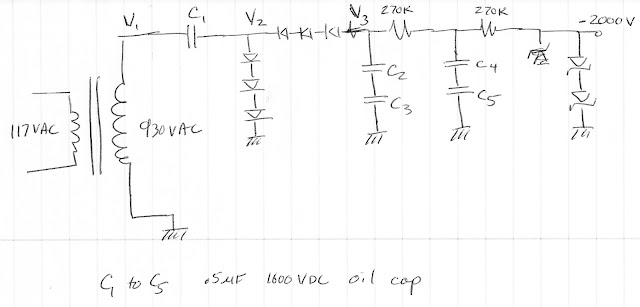 V1 C1 V2 V3 270K 270K -2000V
C2 C4
C3 C5
117VAC 930VAC
C1 to C5 .5MF 1600 VDC oil cap